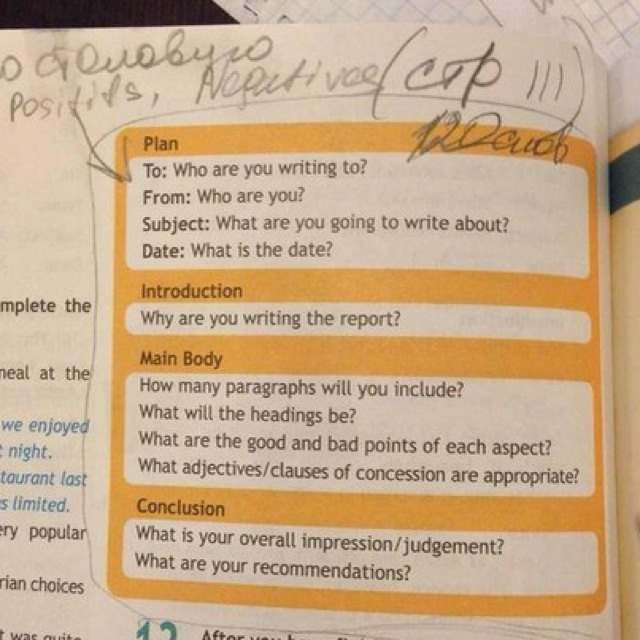 столовую
Positivs, Negatives (стр 111)
120 слов
Plan
To: Who are you writing to?
From: Who are you?
Subject: What are you going to write about?
Date: What is the date?
Introduction
mplete the
Why are you writing the report?
Main Body
neal at the
How many paragraphs will you include?
we enjoyed
What will the headings be?
t night.
What are the good and bad points of each aspect?
staurant last
What adjectives/clauses of concession are appropriate?
s limited.
Conclusion
ery popular
What is your overall impression/judgement?
What are your recommendations?
rian choices
12
t was quite